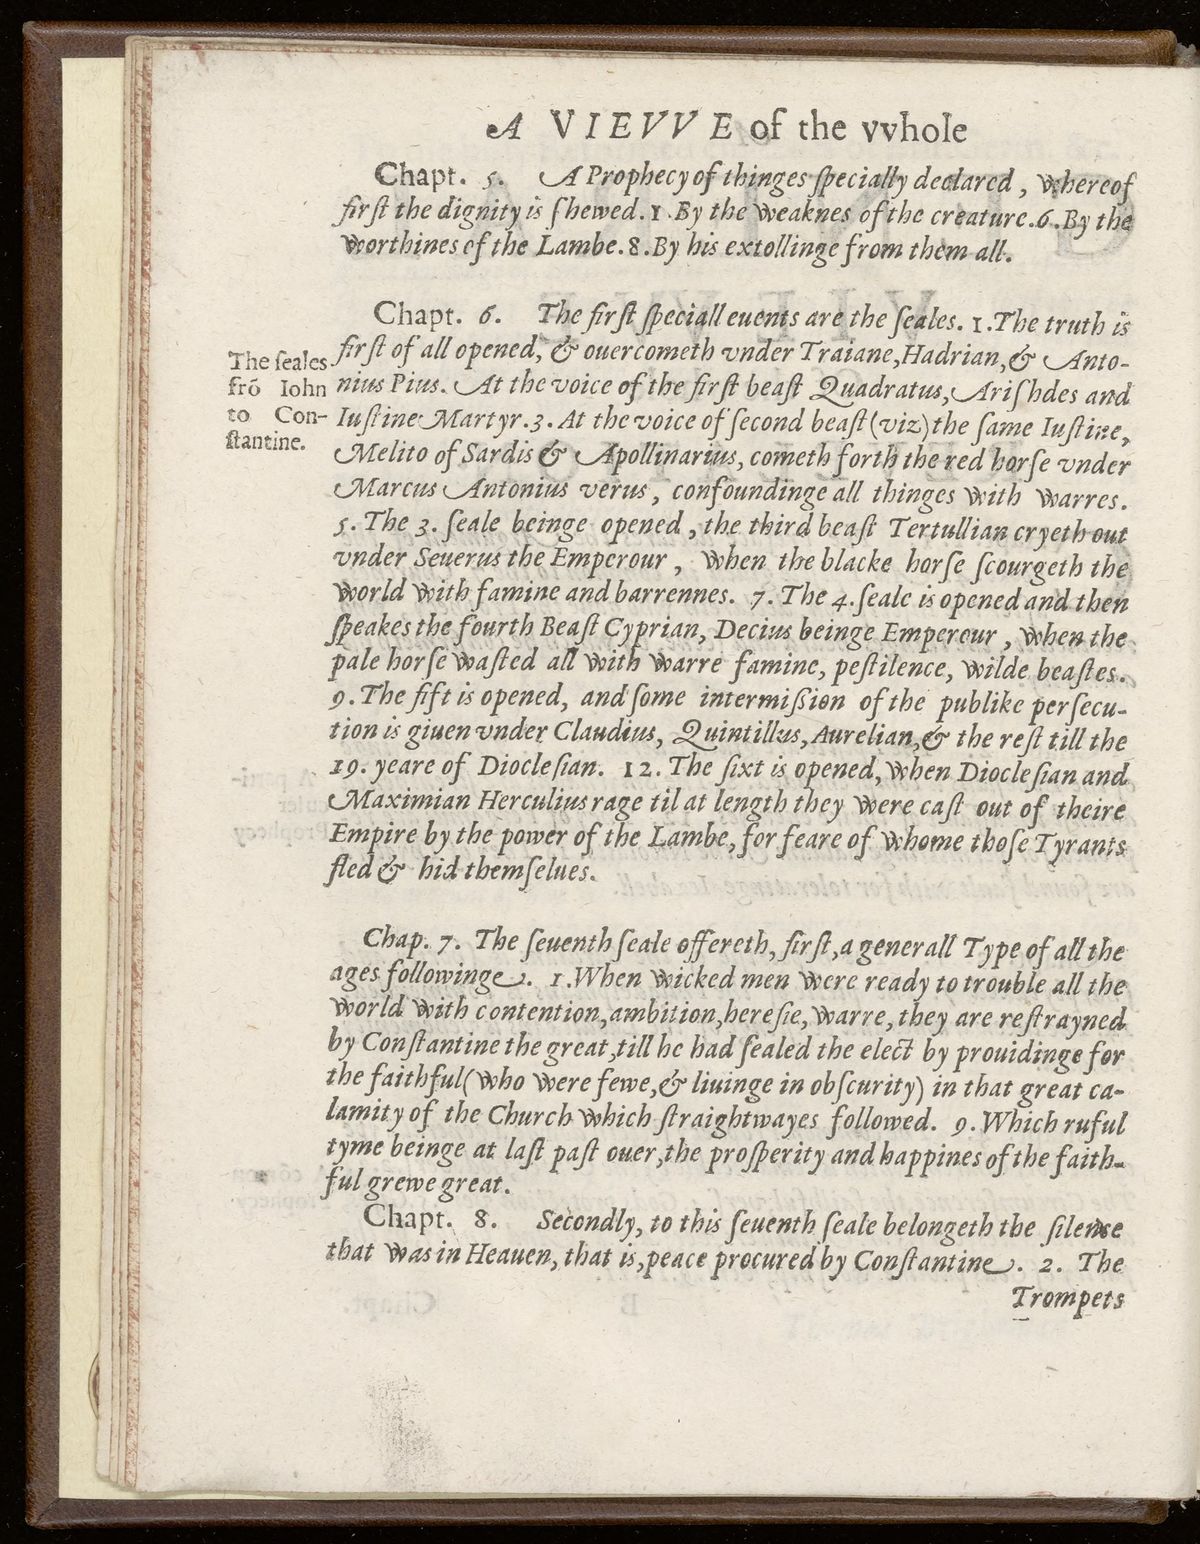 A VIEVVE of the vvhole
Chapt. 5. A Prophecy of thinges ſpecially declared, whereof
firſt the dignity is ſhewed. 1. By the weaknes of the creature. 6. By the
worthines of the Lambe. 8. By his extollinge from them all.
Chapt. 6. The firſt ſpeciall euents are the ſeales. 1. The truth is
firſt of all opened, & ouercometh vnder Traiane, Hadrian, & Anto-
nius Pius. At the voice of the firſt beaſt Quadratus, Ariſhdes and
Iuſtine Martyr. 3. At the voice of ſecond beaſt (viz) the ſame Iuſtine,
Melito of Sardis & Apollinarius, cometh forth the red horſe vnder
Marcus Antonius verus, confoundinge all thinges with warres.
5. The 3. ſeale beinge opened, the third beaſt Tertullian cryeth out
vnder Seuerus the Emperour, when the blacke horſe ſcourgeth the
world with famine and barrennes. 7. The 4. ſeale is opened and then
ſpeakes the fourth Beaſt Cyprian, Decius beinge Emperour, when the
pale horſe waſted all with warre famine, peſtilence, wilde beaſtes.
9. The fift is opened, and ſome intermiſsion of the publike perſecu-
tion is giuen vnder Claudius, Quintillus, Aurelian, & the reſt till the
19. yeare of Diocleſian. 12. The ſixt is opened, when Diocleſian and
Maximian Herculius rage til at length they were caſt out of theire
Empire by the power of the Lambe, for feare of whome thoſe Tyrants
fled & hid themſelues.
The ſeales
frō Iohn
to Con-
ſtantine.
Chap. 7. The ſeuenth ſeale offereth, firſt, a generall Type of all the
ages followinge. 1. When wicked men were ready to trouble all the
world with contention, ambition, hereſie, warre, they are reſtrayned
by Conſtantine the great, till he had ſealed the elect by prouidinge for
the faithful (who were fewe, & liuinge in obſcurity) in that great ca-
lamity of the Church which ſtraightwayes followed. 9. Which ruful
tyme beinge at laſt paſt ouer, the proſperity and happines of the faith-
ful grewe great.
Chapt. 8. Secondly, to this ſeuenth ſeale belongeth the ſilence
that was in Heauen, that is, peace procured by Conſtantine. 2. The
Trompets